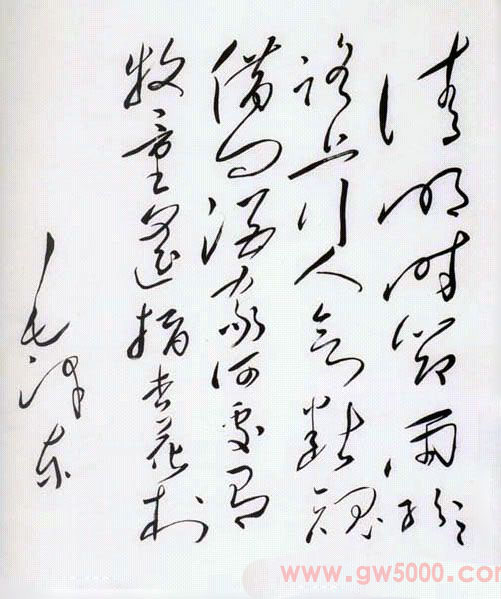 清明时节雨纷纷
路上行人欲断魂
借问酒家何处有
牧童遥指杏花村
毛泽东
www.gw5000.com